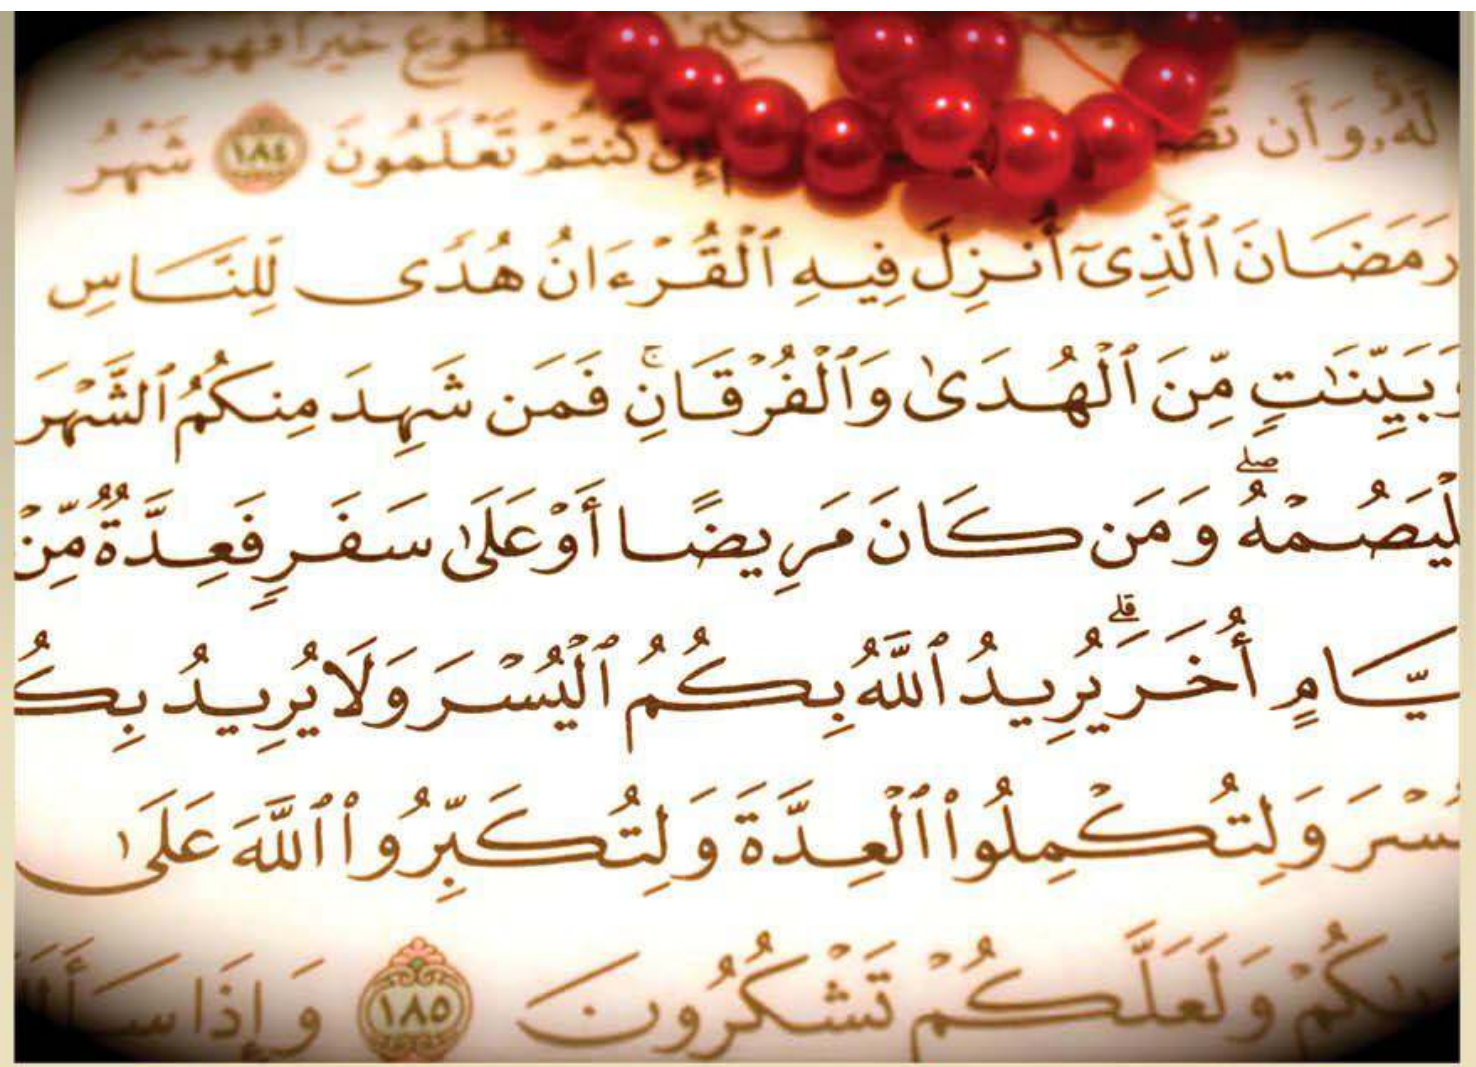 طوع خيرا فهو خير
لَّهُۥ وَأَن إِن كُنتُمْ تَعْلَمُونَ ١٨٤ شَهْرُ
رَمَضَانَ ٱلَّذِىٓ أُنزِلَ فِيهِ ٱلْقُرْءَانُ هُدًى لِّلنَّاسِ
وَبَيِّنَٰتٍ مِّنَ ٱلْهُدَىٰ وَٱلْفُرْقَانِ ۚ فَمَن شَهِدَ مِنكُمُ ٱلشَّهْرَ
لْيَصُمْهُ ۖ وَمَن كَانَ مَرِيضًا أَوْ عَلَىٰ سَفَرٍ فَعِدَّةٌ مِّنْ
يَّامٍ أُخَرَ ۗ يُرِيدُ ٱللَّهُ بِكُمُ ٱلْيُسْرَ وَلَا يُرِيدُ بِكُ
سْرَ وَلِتُكْمِلُوا۟ ٱلْعِدَّةَ وَلِتُكَبِّرُوا۟ ٱللَّهَ عَلَىٰ
كُمْ وَلَعَلَّكُمْ تَشْكُرُونَ ١٨٥ وَإِذَا سَأَلَ